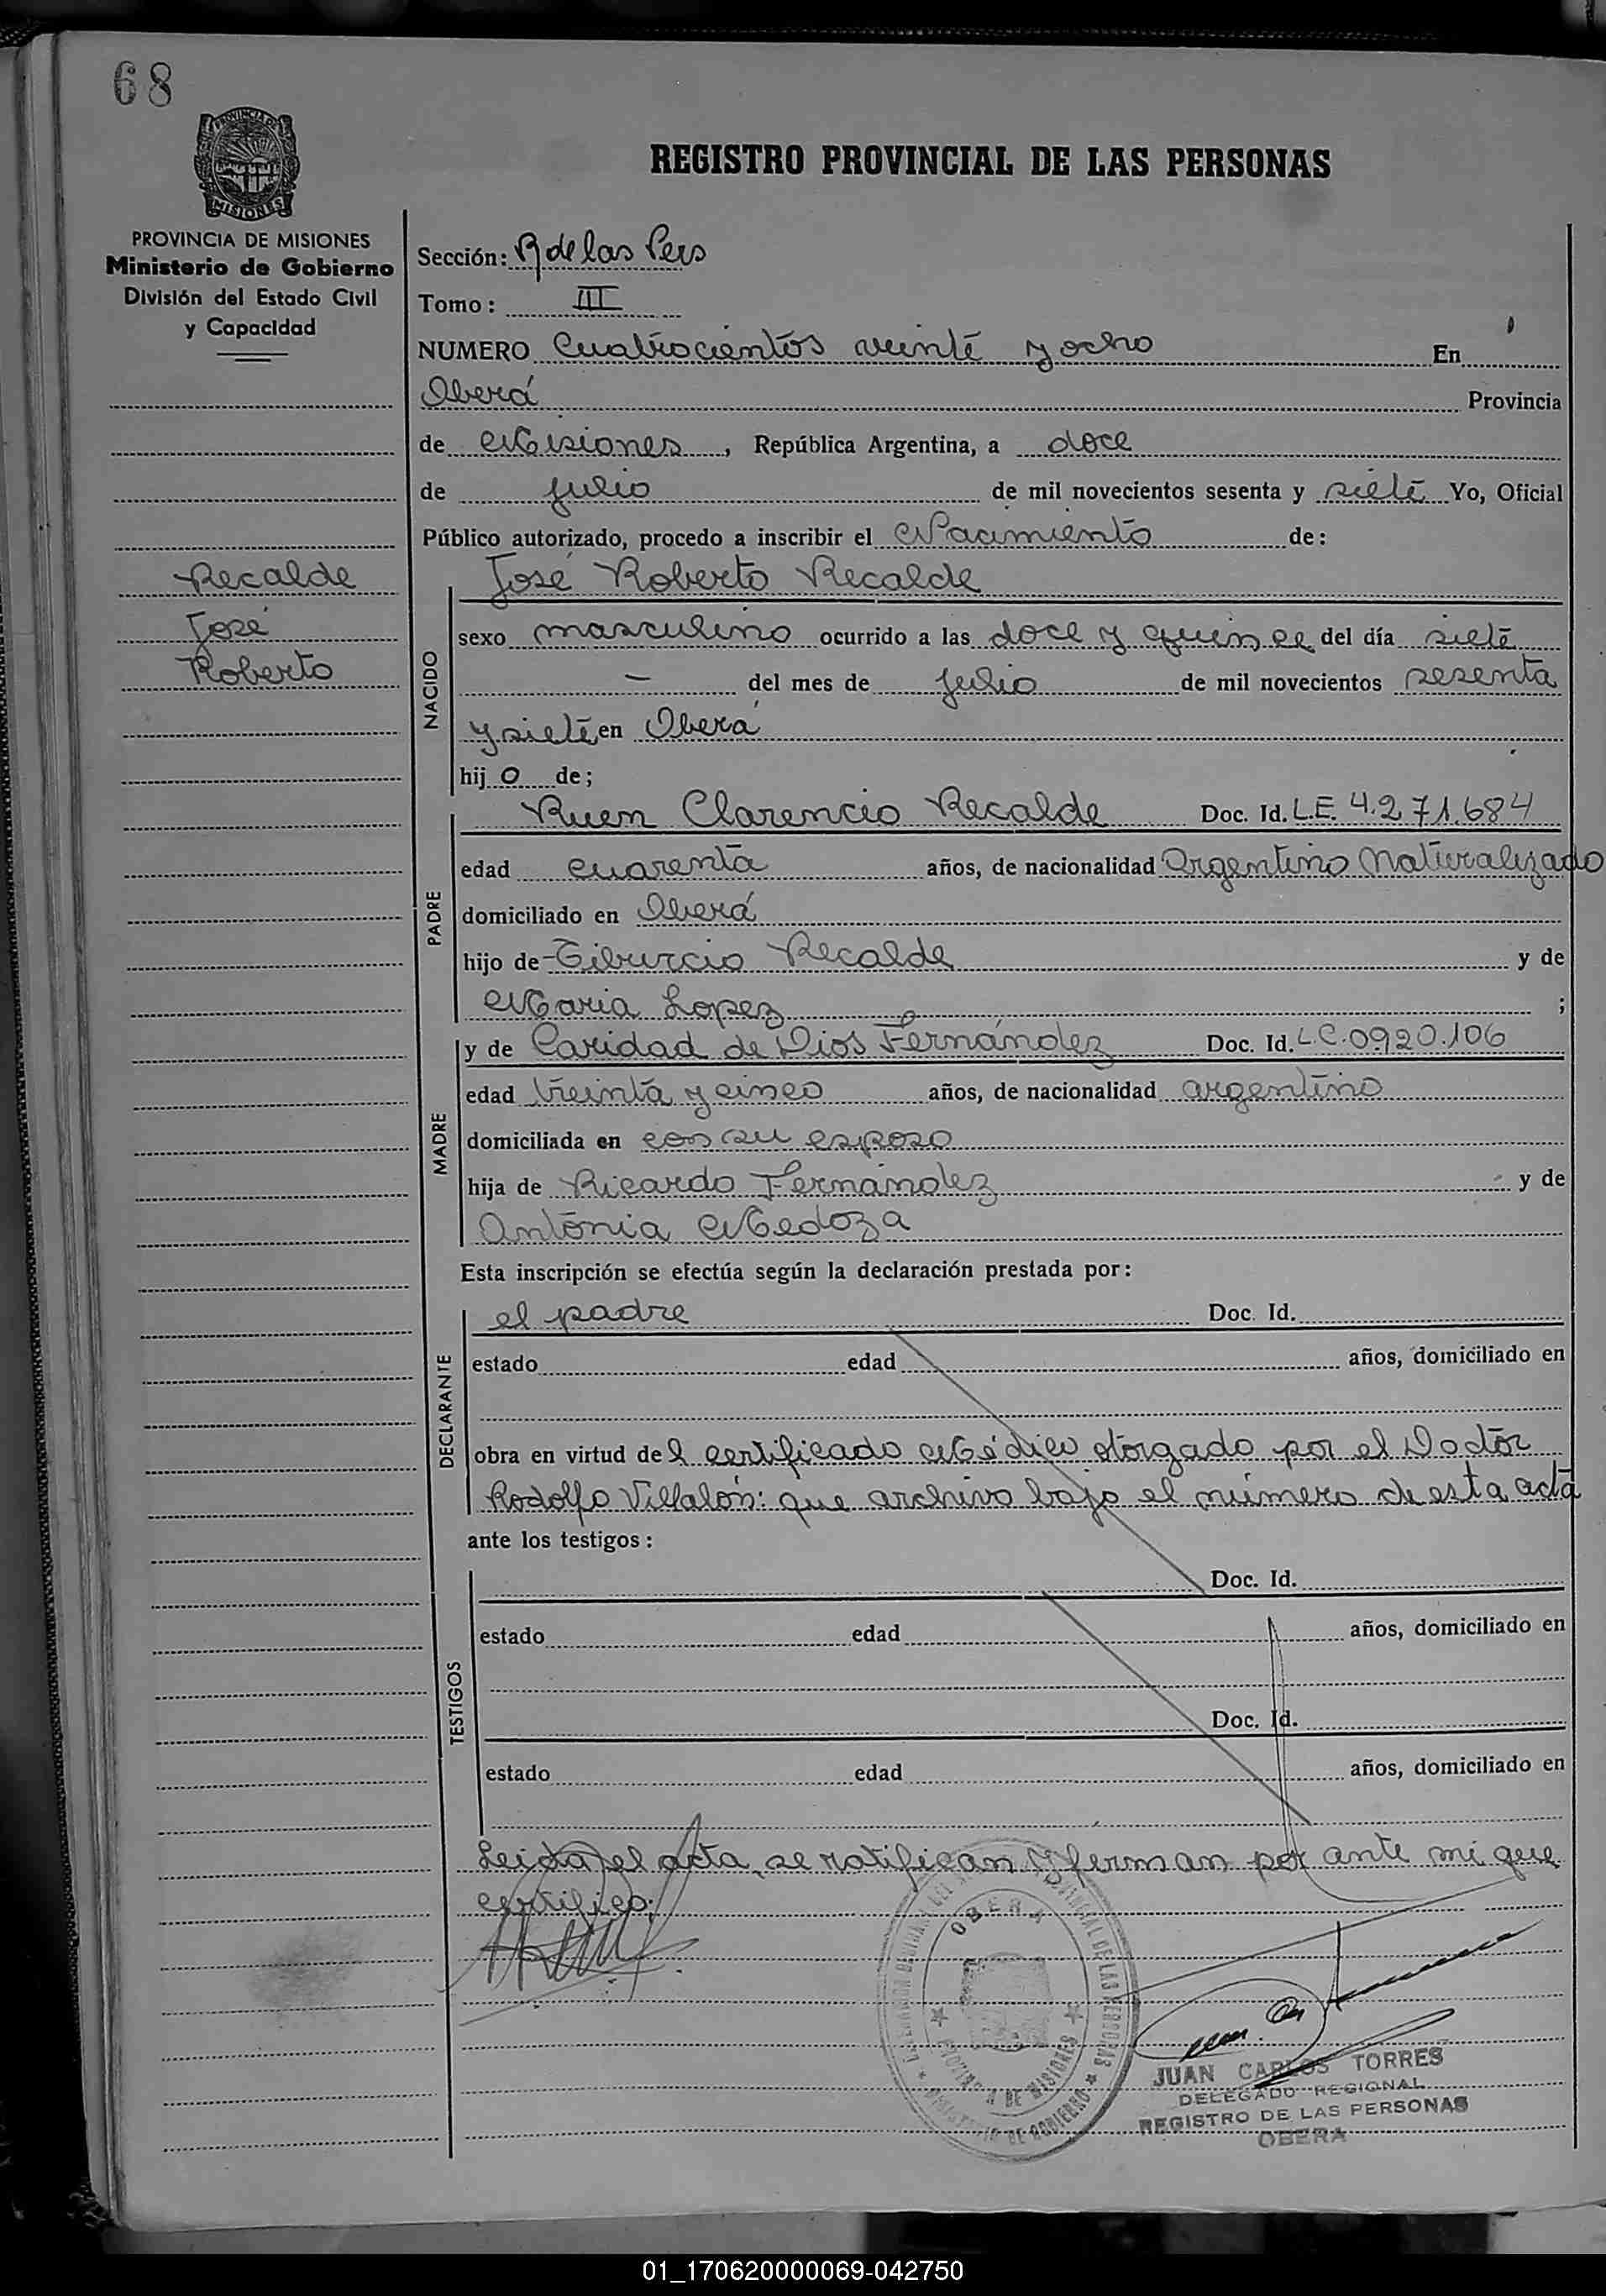 68
PROVINCIA DE
MISIONES
REGISTRO PROVINCIAL DE LAS PERSONAS
PROVINCIA DE MISIONES
Ministerio de Gobierno
División del Estado Civil
y Capacidad
Recalde
José
Roberto
Sección: R de las Pers
Tomo: III
NUMERO Cuatrocientos veinte y ocho En
Oberá Provincia
de Misiones, República Argentina, a doce
de julio de mil novecientos sesenta y siete Yo, Oficial
Público autorizado, procedo a inscribir el Nacimiento de:
José Roberto Recalde
NACIDO
sexo masculino ocurrido a las doce y quince del día siete
- del mes de julio de mil novecientos sesenta
y siete en Oberá
hijo de;
PADRE
Ruen Clarencio Recalde Doc. Id. L.E. 4.271.684
edad cuarenta años, de nacionalidad Argentino Naturalizado
domiciliado en Oberá
hijo de Tiburcio Recalde y de
Maria Lopez ;
MADRE
y de Caridad de Dios Fernández Doc. Id. L.C. 0920.106
edad treinta y cinco años, de nacionalidad argentino
domiciliada en con su esposo
hija de Ricardo Fernández y de
Antonia Medoza
Esta inscripción se efectúa según la declaración prestada por:
DECLARANTE
el padre Doc. Id.
estado edad años, domiciliado en
obra en virtud del certificado Médico otorgado por el Doctor
Rodolfo Villalón: que archivo bajo el número de esta acta
ante los testigos:
TESTIGOS
Doc. Id.
estado edad años, domiciliado en
Doc. Id.
estado edad años, domiciliado en
Leida el acta, se ratifican y firman por ante mi que
certifico:
OBERA
PROVINCIA DE MISIONES
MINISTERIO DE GOBIERNO
JUAN CARLOS TORRES
DELEGADO REGIONAL
REGISTRO DE LAS PERSONAS
OBERA
01_170620000069-042750